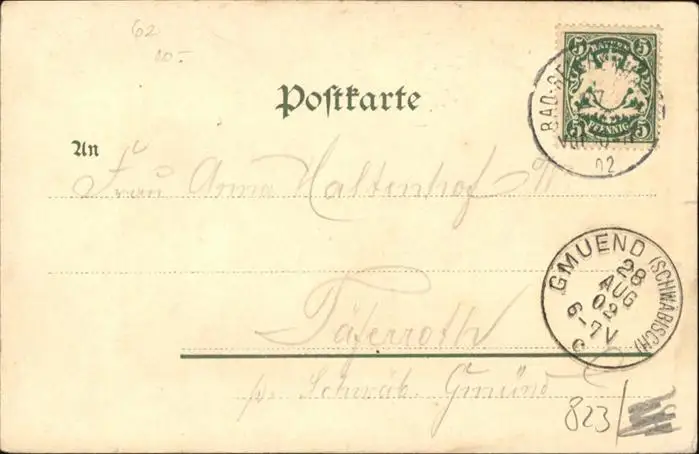 62
10.-
5 BAYERN 5
5 PFENNIG 5
BAD-
12
Postkarte
An
Frau Anna Haltenhof
GMUEND (SCHWÄBISCH)
28
AUG
02
6-7V
Täferroth
p. Schwäb. Gmünd
823/